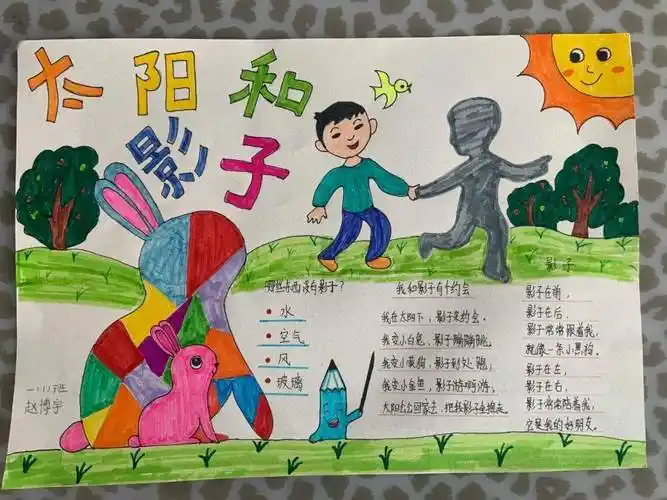 太阳和
影子
哪些东西没有影子？
水
空气
风
玻璃
我和影子有个约会
我在太阳下，影子来约会。
我变小白兔，影子蹦蹦跳，
我变小黄狗，影子到处跑，
我变小金鱼，影子游啊游，
太阳公公回家去，把我影子全捎走。
影子
影子在前，
影子在后，
影子常常跟着我，
就像一条小黑狗。
影子在左，
影子在右，
影子常常陪着我，
它是我的好朋友。
一（1）班
赵博宇